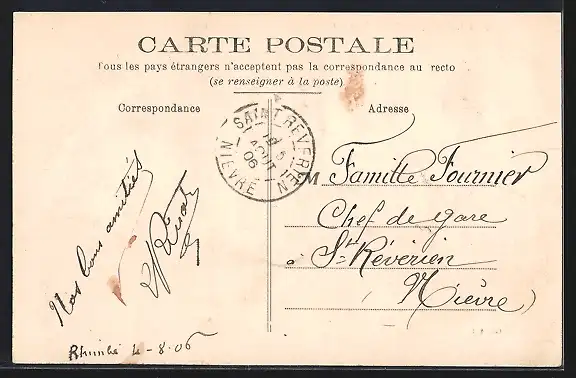 CARTE POSTALE
Tous les pays étrangers n'acceptent pas la correspondance au recto
(se renseigner à la poste)
Correspondance
Adresse
SAINT RÉVÉRIEN
5
AOUT
06
NIÈVRE
M Famille Fournier
Chef de gare
à St Révérien
(Nièvre)
Nos bons amitiés
4-8-06